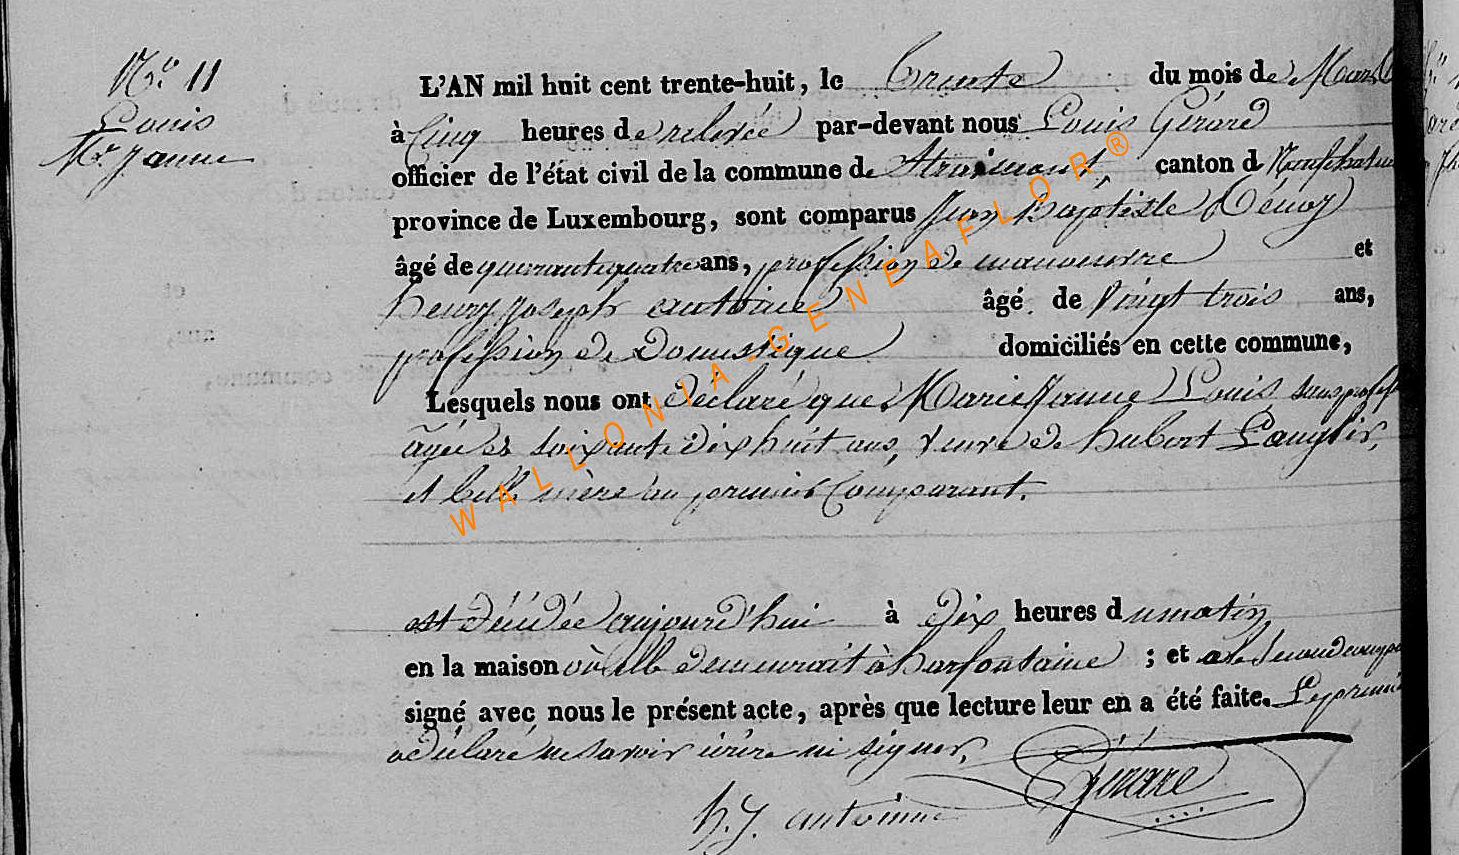 N.o 11
Louis
M.ie Janne
L'AN mil huit cent trente-huit, le trente du mois de Mars
à Cinq heures de relevée par-devant nous Louis Gérard
officier de l'état civil de la commune de Straimont canton de Neufchateau
province de Luxembourg, sont comparus Jean Baptiste
âgé de quarante quatre ans, profession de manouvre et
henry Joseph antoine âgé de Vingt trois ans,
profession de Domestique domiciliés en cette commune,
Lesquels nous ont déclaré que Marie Janne Louis sans profess
âgée de soixante dix huit ans, Veuve de hubert Lauglir,
et belle mère au premier Comparant.
est décédée aujourd'hui à dix heures du matin
en la maison où elle demeurait à harfontaine ; et a le second comp
signé avec nous le présent acte, après que lecture leur en a été faite. Le premie
a déclaré ne savoir écrire ni signer.
h. J. antoinne Gérard
WALLONIA-GENEAFLOR®